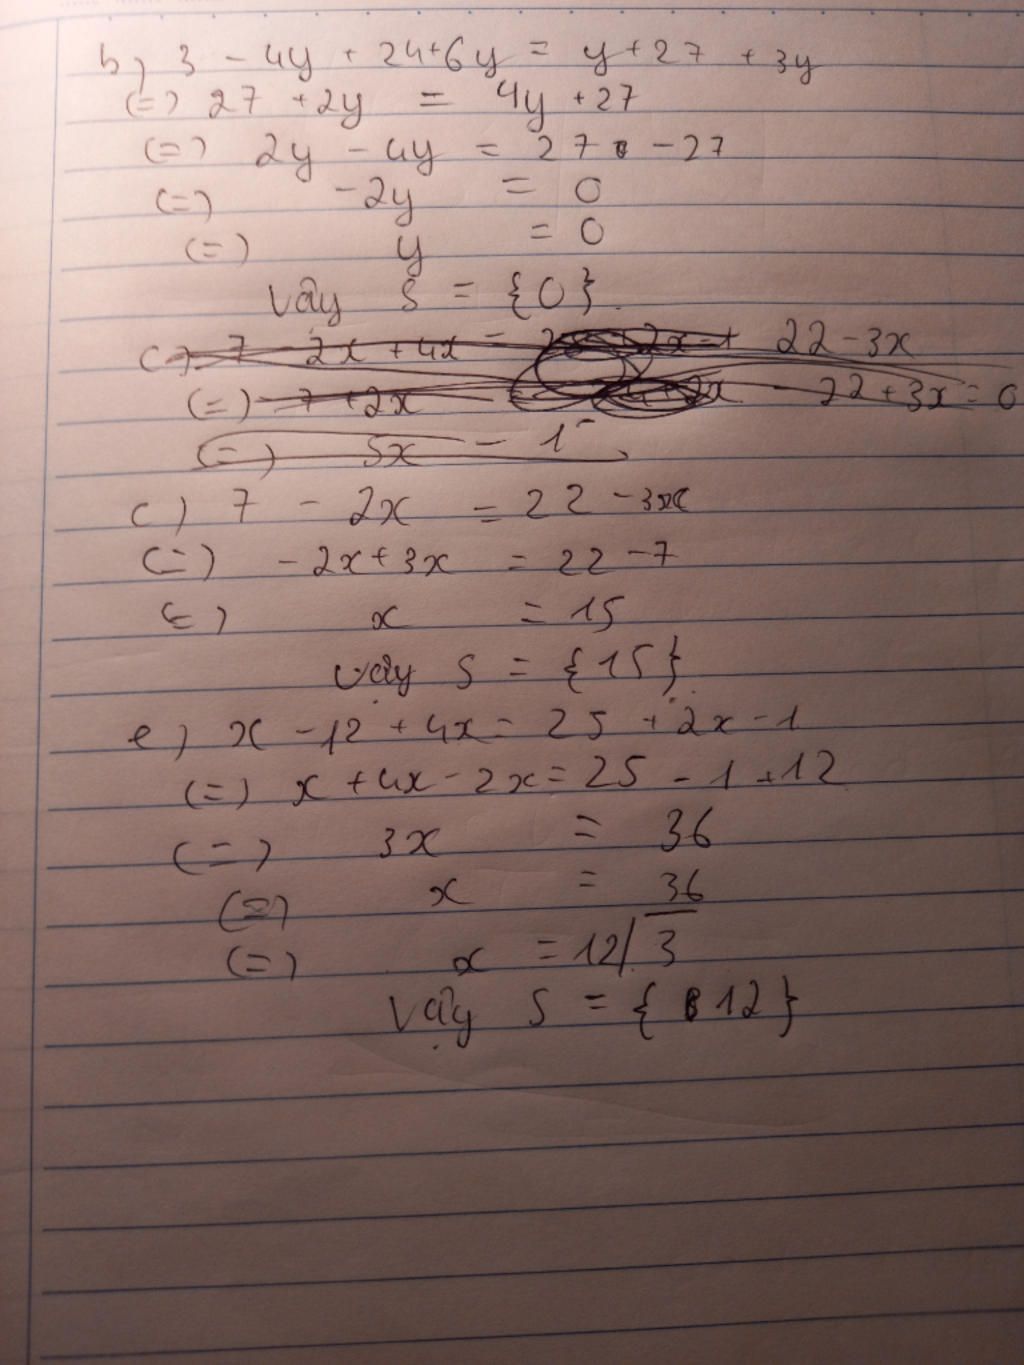 b) 3 - 4y + 24+6y = y+27 + 3y
(=) 27 +2y = 4y +27
(=) 2y - 4y = 27 -27
(=) -2y = 0
(=) y = 0
Vậy S = {0}.
c) 7 - 2x + 4x = 22 - 3x
(=) 7 + 2x - 22 + 3x = 0
(=) 5x = 15
c) 7 - 2x = 22 - 3x
(=) -2x + 3x = 22 - 7
(=) x = 15
Vậy S = {15}
e) x - 12 + 4x = 25 + 2x - 1
(=) x + 4x - 2x = 25 - 1 + 12
(=) 3x = 36
(=) x = 36/3
(=) x = 12
Vậy S = {12}